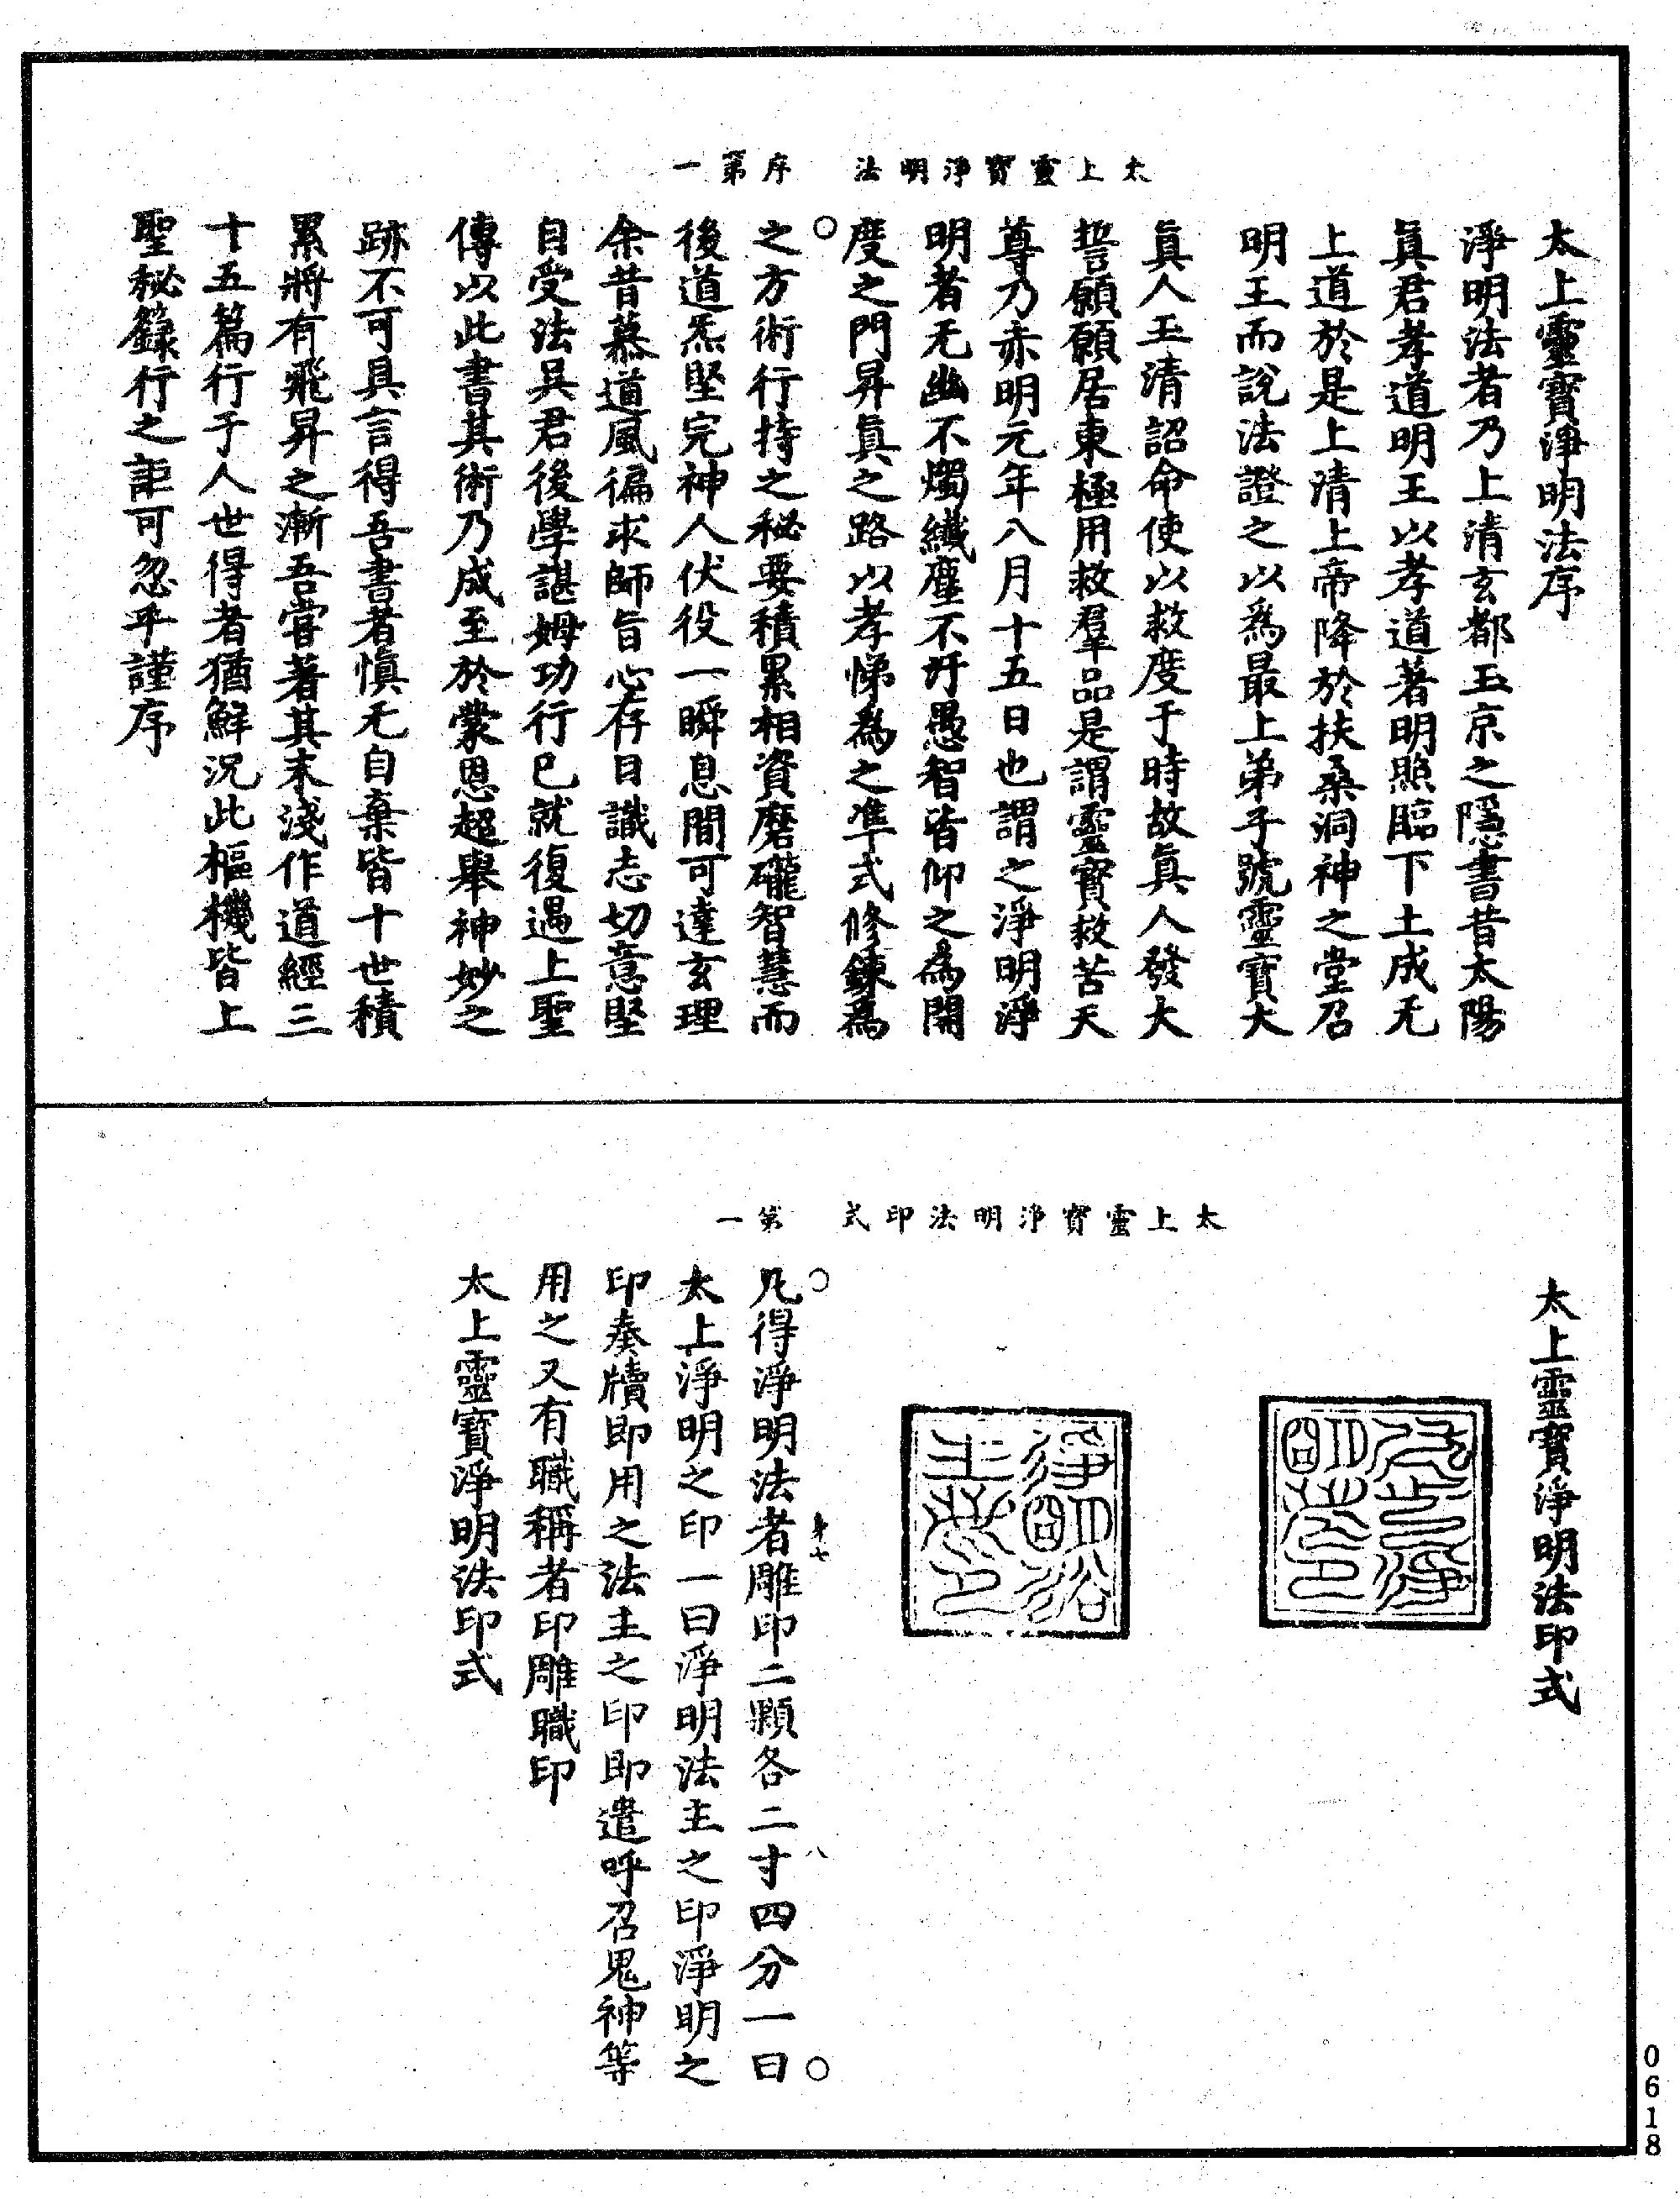 太上靈寶淨明法　序　第一
太上靈寶淨明法序
淨明法者乃上清玄都玉京之隱書昔太陽
眞君孝道明王以孝道著明照臨下土成无
上道於是上清上帝降於扶桑洞神之堂召
明王而說法證之以爲最上弟子號靈寶大
眞人玉清詔命使以救度于時故眞人發大
誓願願居東極用救羣品是謂靈寶救苦天
尊乃赤明元年八月十五日也謂之淨明淨
明者无幽不燭纖塵不汙愚智皆仰之爲開
度之門昇眞之路以孝悌爲之準式修鍊爲
之方術行持之秘要積累相資磨礲智慧而
後道炁堅完神人伏役一瞬息間可達玄理
余昔慕道風徧求師旨心存目識志切意堅
自受法吳君後學諶姆功行已就復遇上聖
傳以此書其術乃成至於蒙恩超舉神妙之
跡不可具言得吾書者愼无自棄皆十世積
累將有飛昇之漸吾嘗著其末淺作道經三
十五篇行于人世得者猶鮮況此樞機皆上
聖秘籙行之詎可忽乎謹序
太上靈寶淨明法印式　第一
太上靈寶淨明法印式
凡得淨明法者雕印二顆各二寸四分一曰
太上淨明之印一曰淨明法主之印淨明之
印奏牘即用之法主之印即遣呼召鬼神等
用之又有職稱者印雕職印
太上靈寶淨明法印式
0618